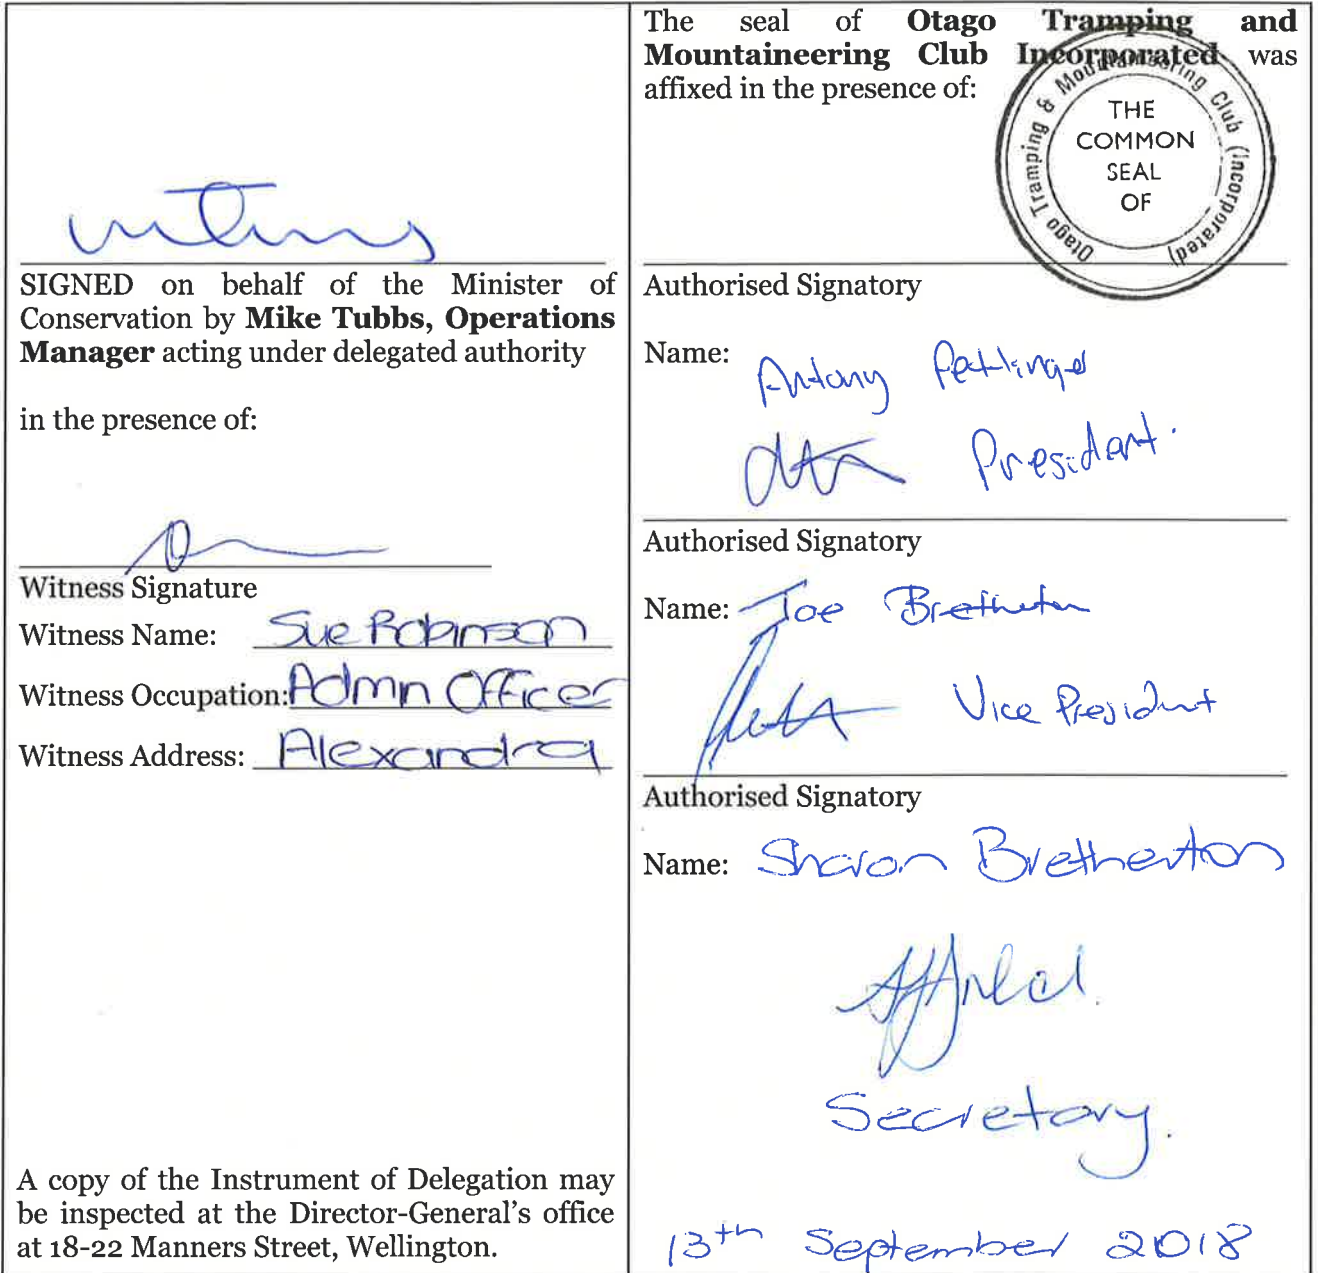 SIGNED on behalf of the Minister of
Conservation by Mike Tubbs, Operations
Manager acting under delegated authority
in the presence of:
Witness Signature
Witness Name: Sue Robinson
Witness Occupation: Admn Officer
Witness Address: Alexandra
A copy of the Instrument of Delegation may
be inspected at the Director-General's office
at 18-22 Manners Street, Wellington.
The seal of Otago Tramping and
Mountaineering Club Incorporated was
affixed in the presence of:
Otago Tramping & Mountaineering Club (Incorporated)
THE
COMMON
SEAL
OF
Authorised Signatory
Name: Antony Pettinger
President.
Authorised Signatory
Name: Joe Bretherton
Vice President
Authorised Signatory
Name: Sharon Bretherton
Secretary.
13th September 2018